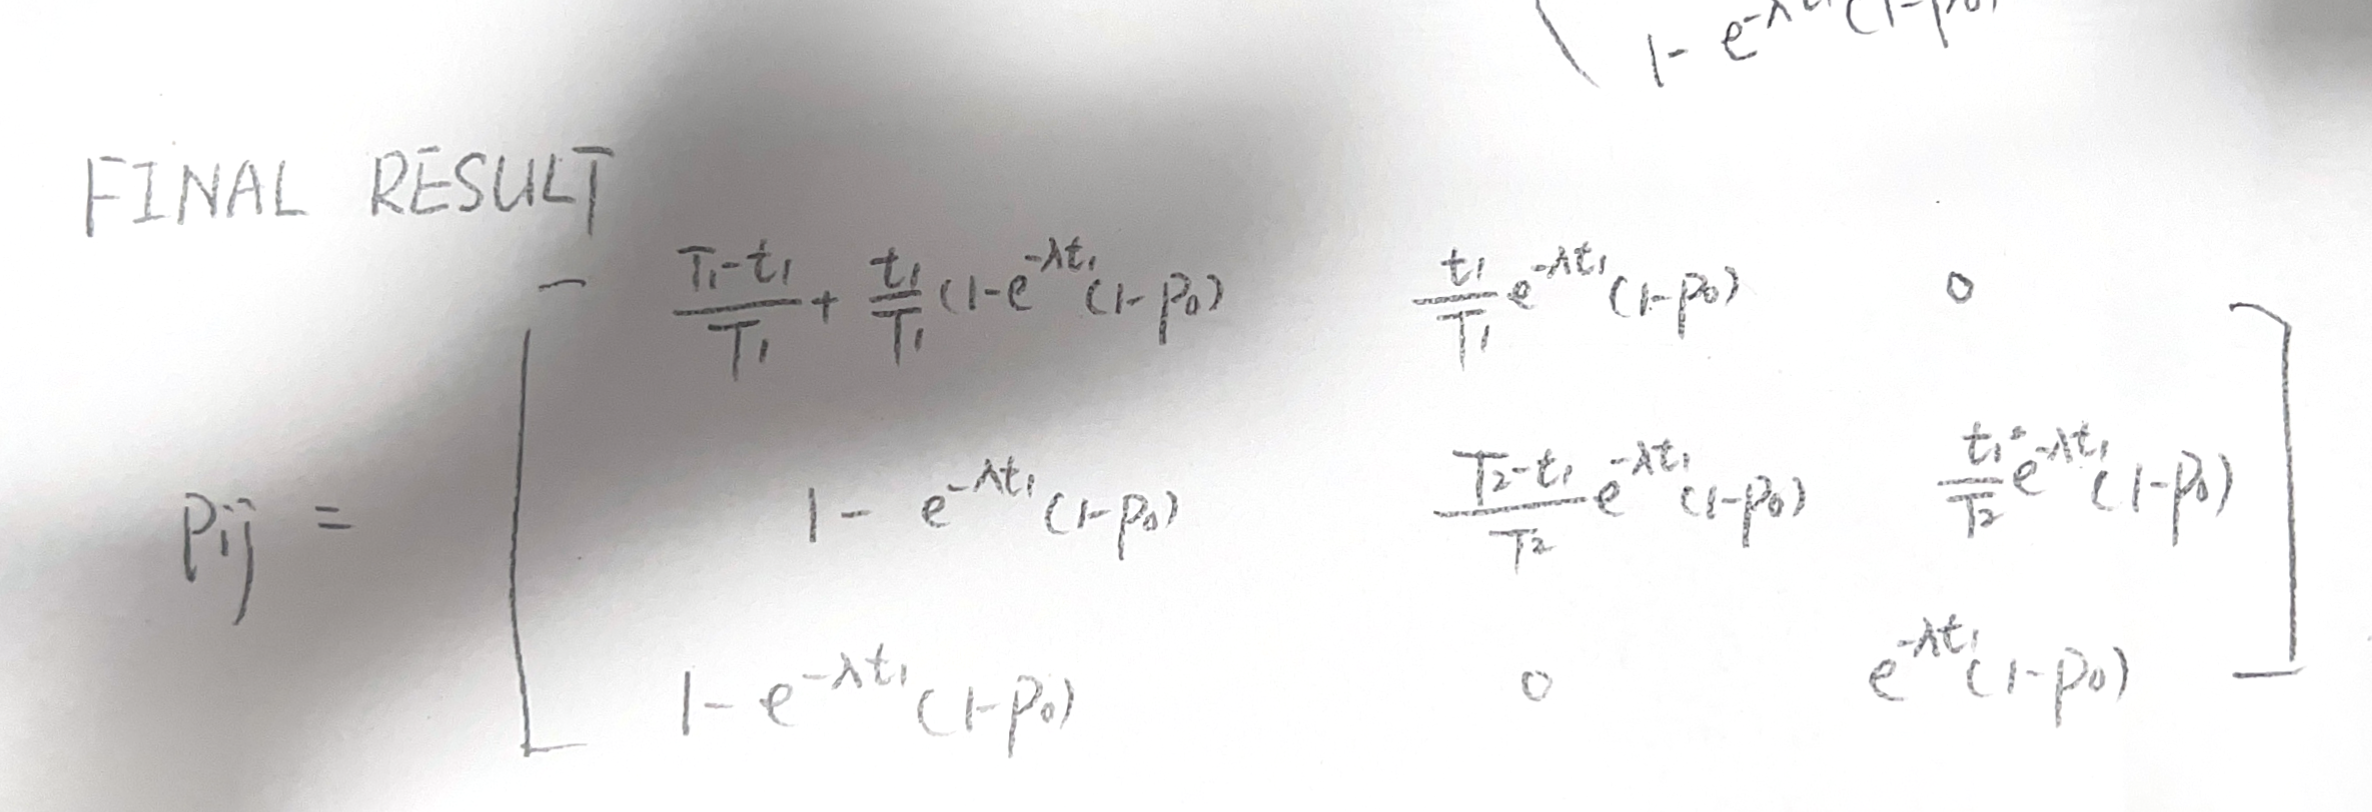 1- e^{-λt_1}(1-p_0)
FINAL RESULT
\frac{T_1-t_1}{T_1} + \frac{t_1}{T_1}(1-e^{-λt_1}(1-p_0) \frac{t_1}{T_1}e^{-λt_1}(1-p_0) 0
p_{ij} = 1- e^{-λt_1}(1-p_0) \frac{T_2-t_1}{T_2}e^{-λt_1}(1-p_0) \frac{t_1}{T_2}e^{-λt_1}(1-p_0)
1-e^{-λt_1}(1-p_0) 0 e^{-λt_1}(1-p_0)